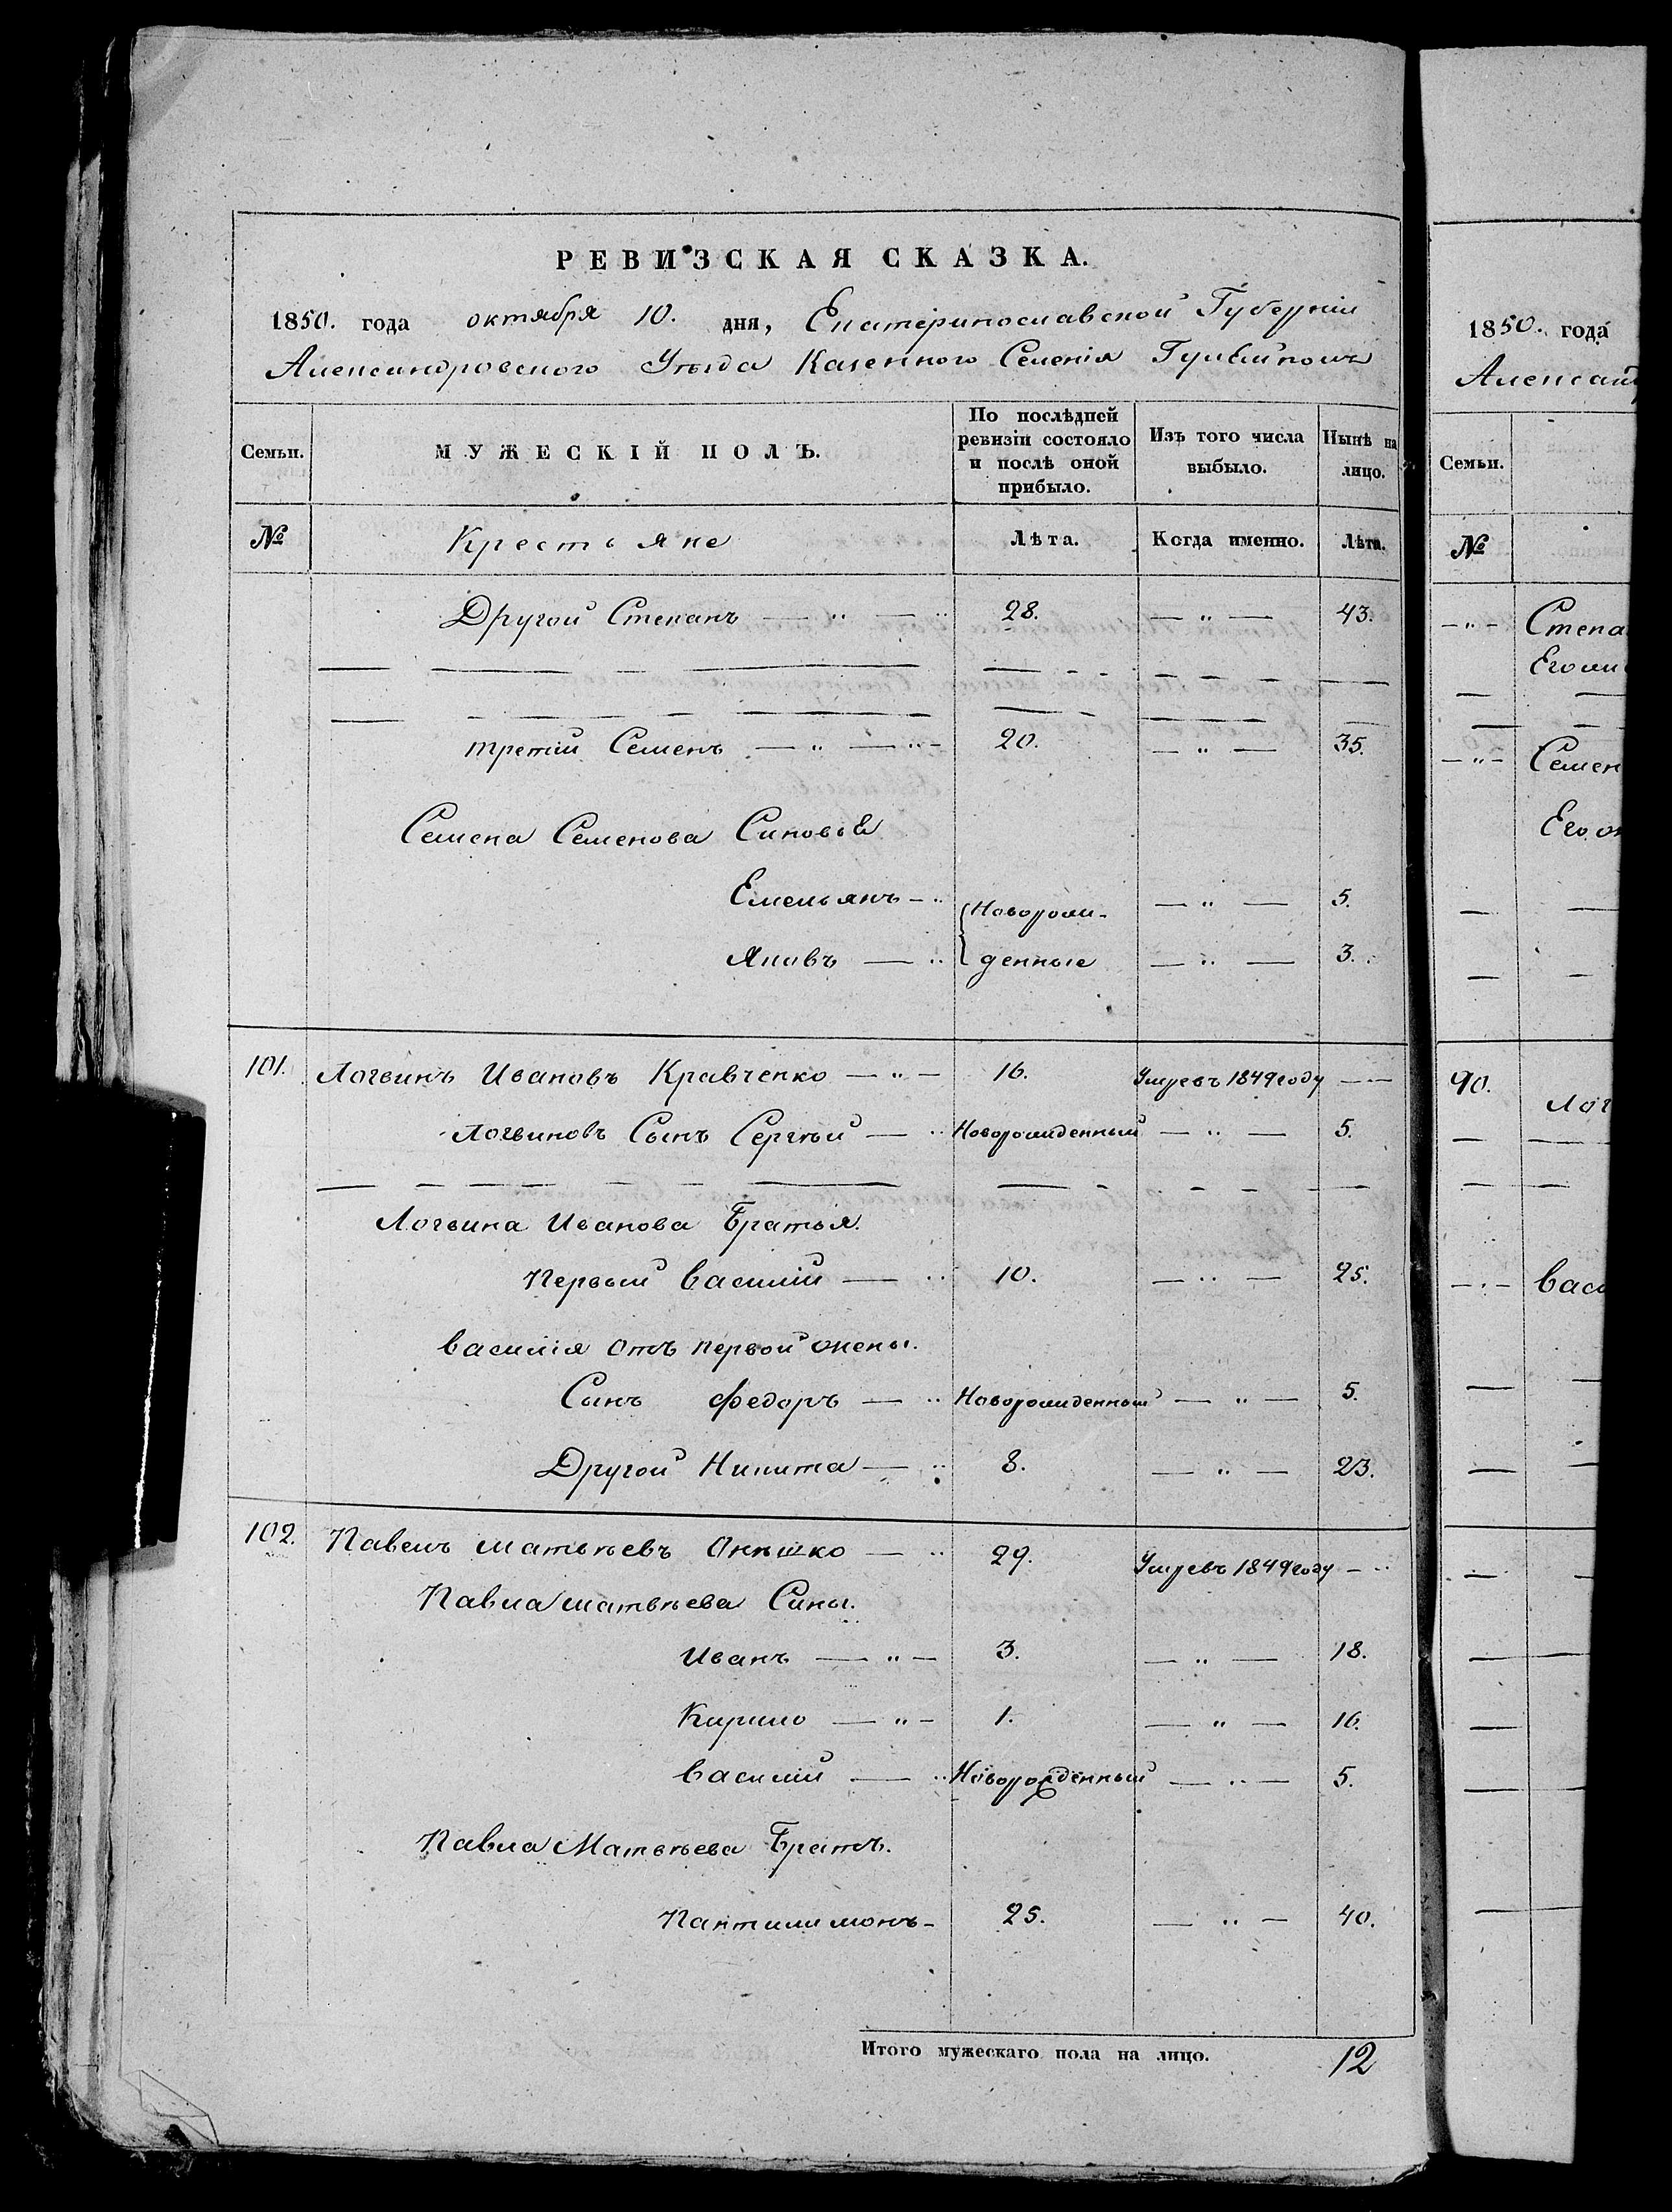 РЕВИЗСКАЯ СКАЗКА.
1850. года октября 10. дня, Екатеринославской Губерніи
Александровского Уѣзда Казенного Селенія
Семьи. МУЖЕСКІЙ ПОЛЪ. По послѣдней ревизіи состояло и послѣ оной прибыло. Изъ того числа выбыло. Нынѣ на лицо.
№ Крестьяне Лѣта. Когда именно. Лѣта.
Другой Степанъ — " — " 28. — " — 43.
третій Семенъ — " — " — 20. — " — 35.
Семена Семенова Синовья
Емельянъ — " Новорож- — " — 5.
Яковъ — " денные — " — 3.
101. Логвинъ Ивановъ Кравченко — " — 16. Умръ въ 1849 году — " —
Логвиновъ Сынъ Сергѣй — " Новорожденный — " — 5.
Логвина Иванова Братья.
Первый Василій — " 10. — " — 25.
Василія отъ первой жены.
Сынъ Федоръ — " Новорожденный — " — 5.
Другой Никита — " 8. — " — 23.
102. Павелъ Матвѣевъ — " 29. Умръ въ 1849 году — "
Павла Матвѣева Сины.
Иванъ — " — 3. — " — 18.
Кирило — " — 1. — " — 16.
Василій — " Новорожденный — " — 5.
Павла Матвѣева Братъ.
Пантилимонъ — 25. — " — 40.
Итого мужескаго пола на лицо. 12
1850. года
Александ
Семьи.
№
— " — Степа
Его
— " — Семен
Его
90. Лог
— " — Васи